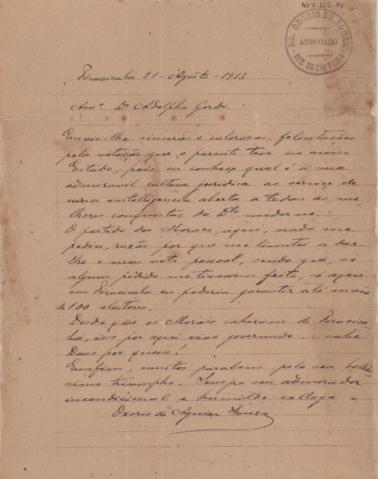 DR. OZORIO DE SOUZA
ADVOGADO
Piracicaba 21 - Agosto - 1913
Amº Dr Adolpho Gordo.
Envio-lhe sinceras e calorosas felicitações
pela votação que o parente teve na nosso
Estado, pois eu conheço qual é a sua
admiravel cultura juridica ao serviço de
uma intelligencia aberta a todas as me
lhores conquistas do Dtº moderno.
O partido dos Moraes, aqui, nada me
pediu, razão por que me limitei a dar-
lhe o meu voto pessoal, sendo que, si
algum pedido me tivessem feito, só aqui
em Piracicaba eu poderia garantir até mais
de 100 eleitores.
Desde que os Moraes sahiram de Piracica
ba, isso por aqui vive governado ... sabe
Deus por quem!
Emfim, muitos parabens pelo seu bellis
simo triumpho. Sempre seu admirador
incondicional e humilde collega
Ozorio de Aguiar Souza